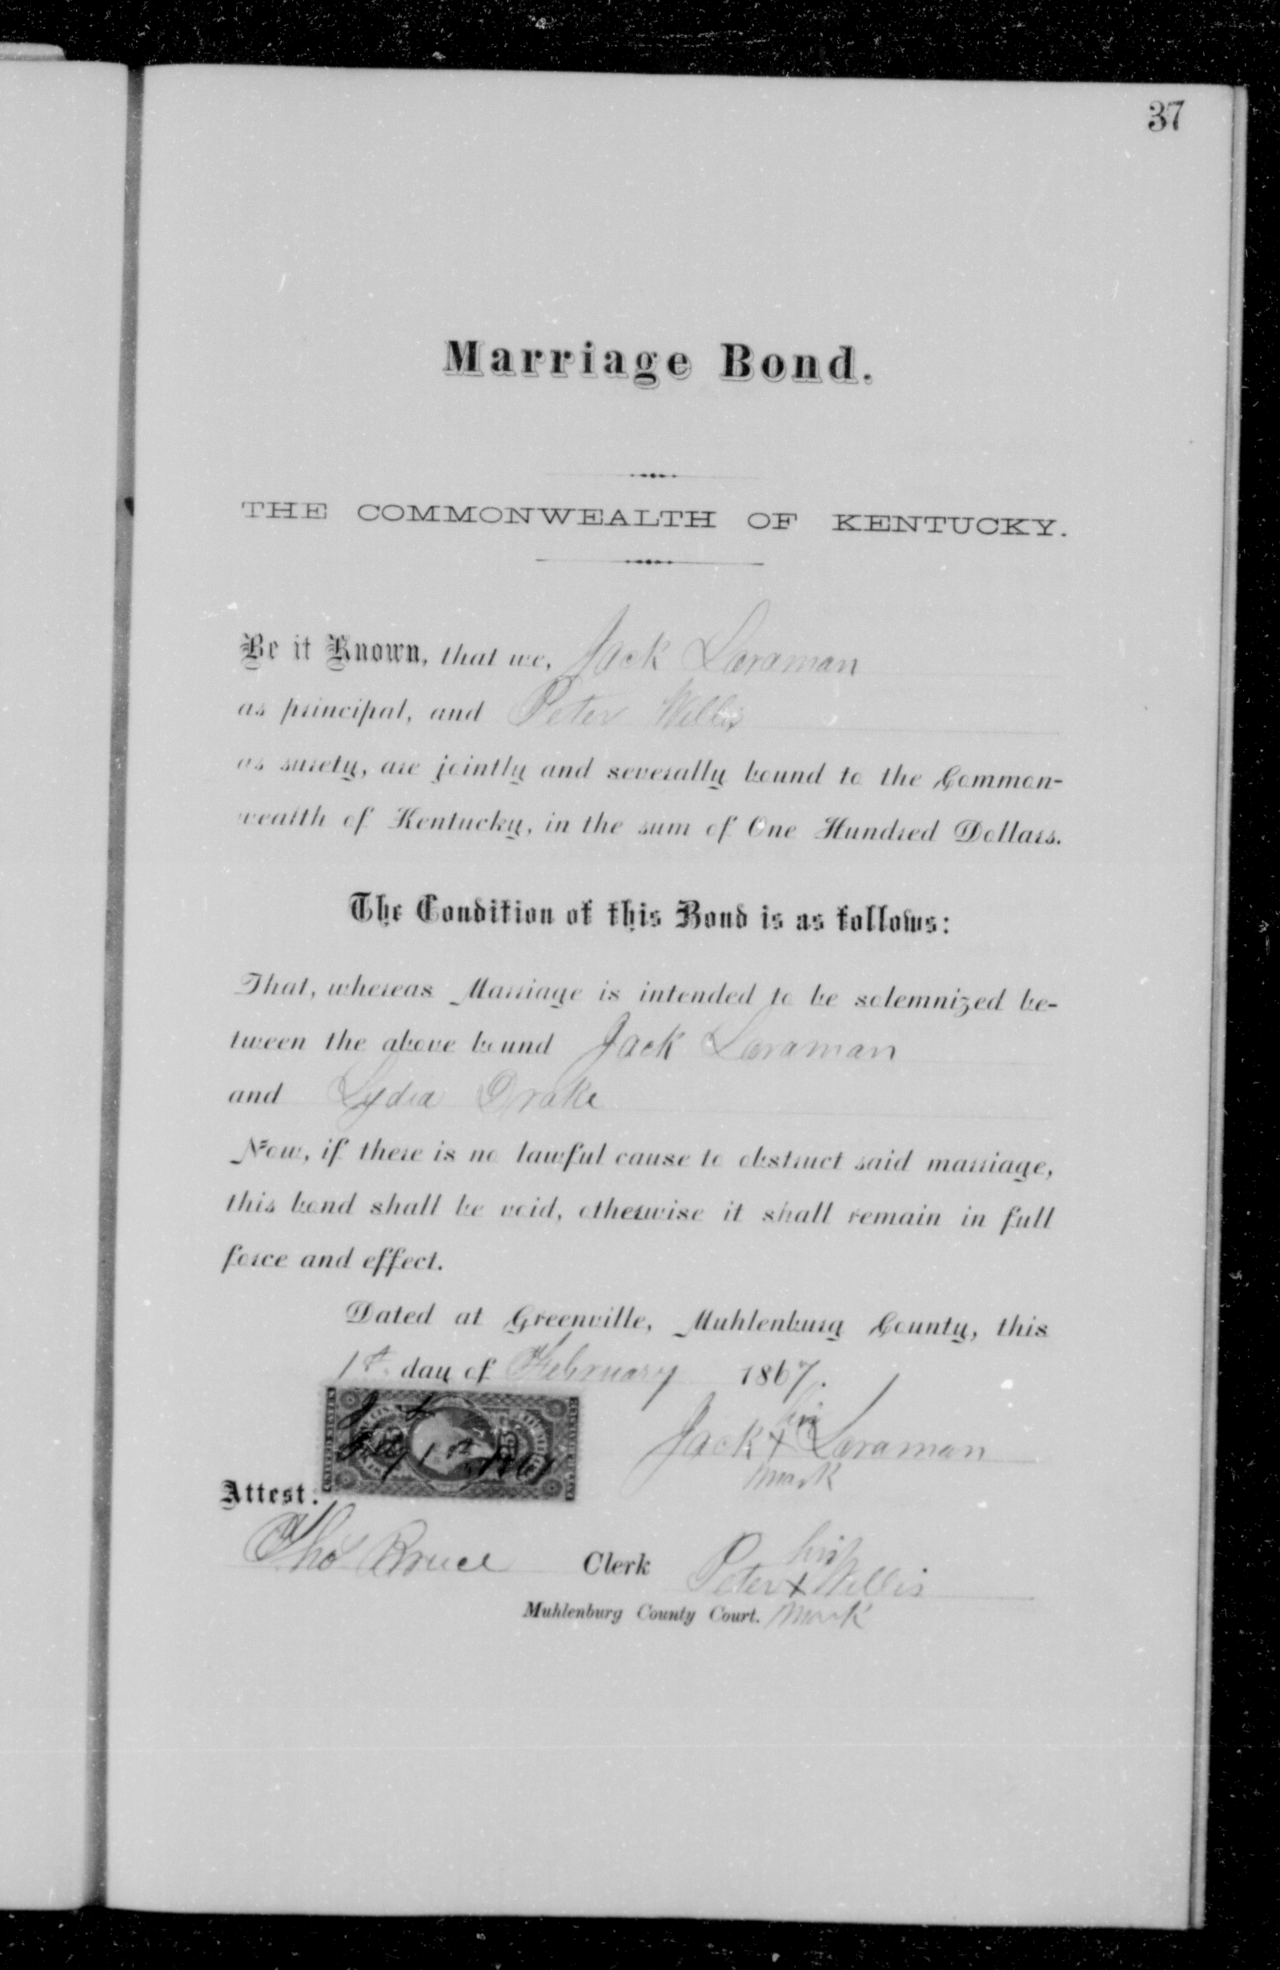 37
Marriage Bond.
THE COMMONWEALTH OF KENTUCKY.
Be it Known, that we, Jack Loraman
as principal, and Peter Willis
as surety, are jointly and severally bound to the Common-
wealth of Kentucky, in the sum of One Hundred Dollars.
The Condition of this Bond is as follows:
That, whereas Marriage is intended to be solemnized be-
tween the above bound Jack Loraman
and Lydia Drake
Now, if there is no lawful cause to obstruct said marriage,
this bond shall be void, otherwise it shall remain in full
force and effect.
Dated at Greenville, Muhlenburg County, this
1st day of February 1867.
his
Jack X Loraman
mark
Feby 1st 1867
Attest:
Tho Bruce Clerk
his
Peter X Willis
mark
Muhlenburg County Court.